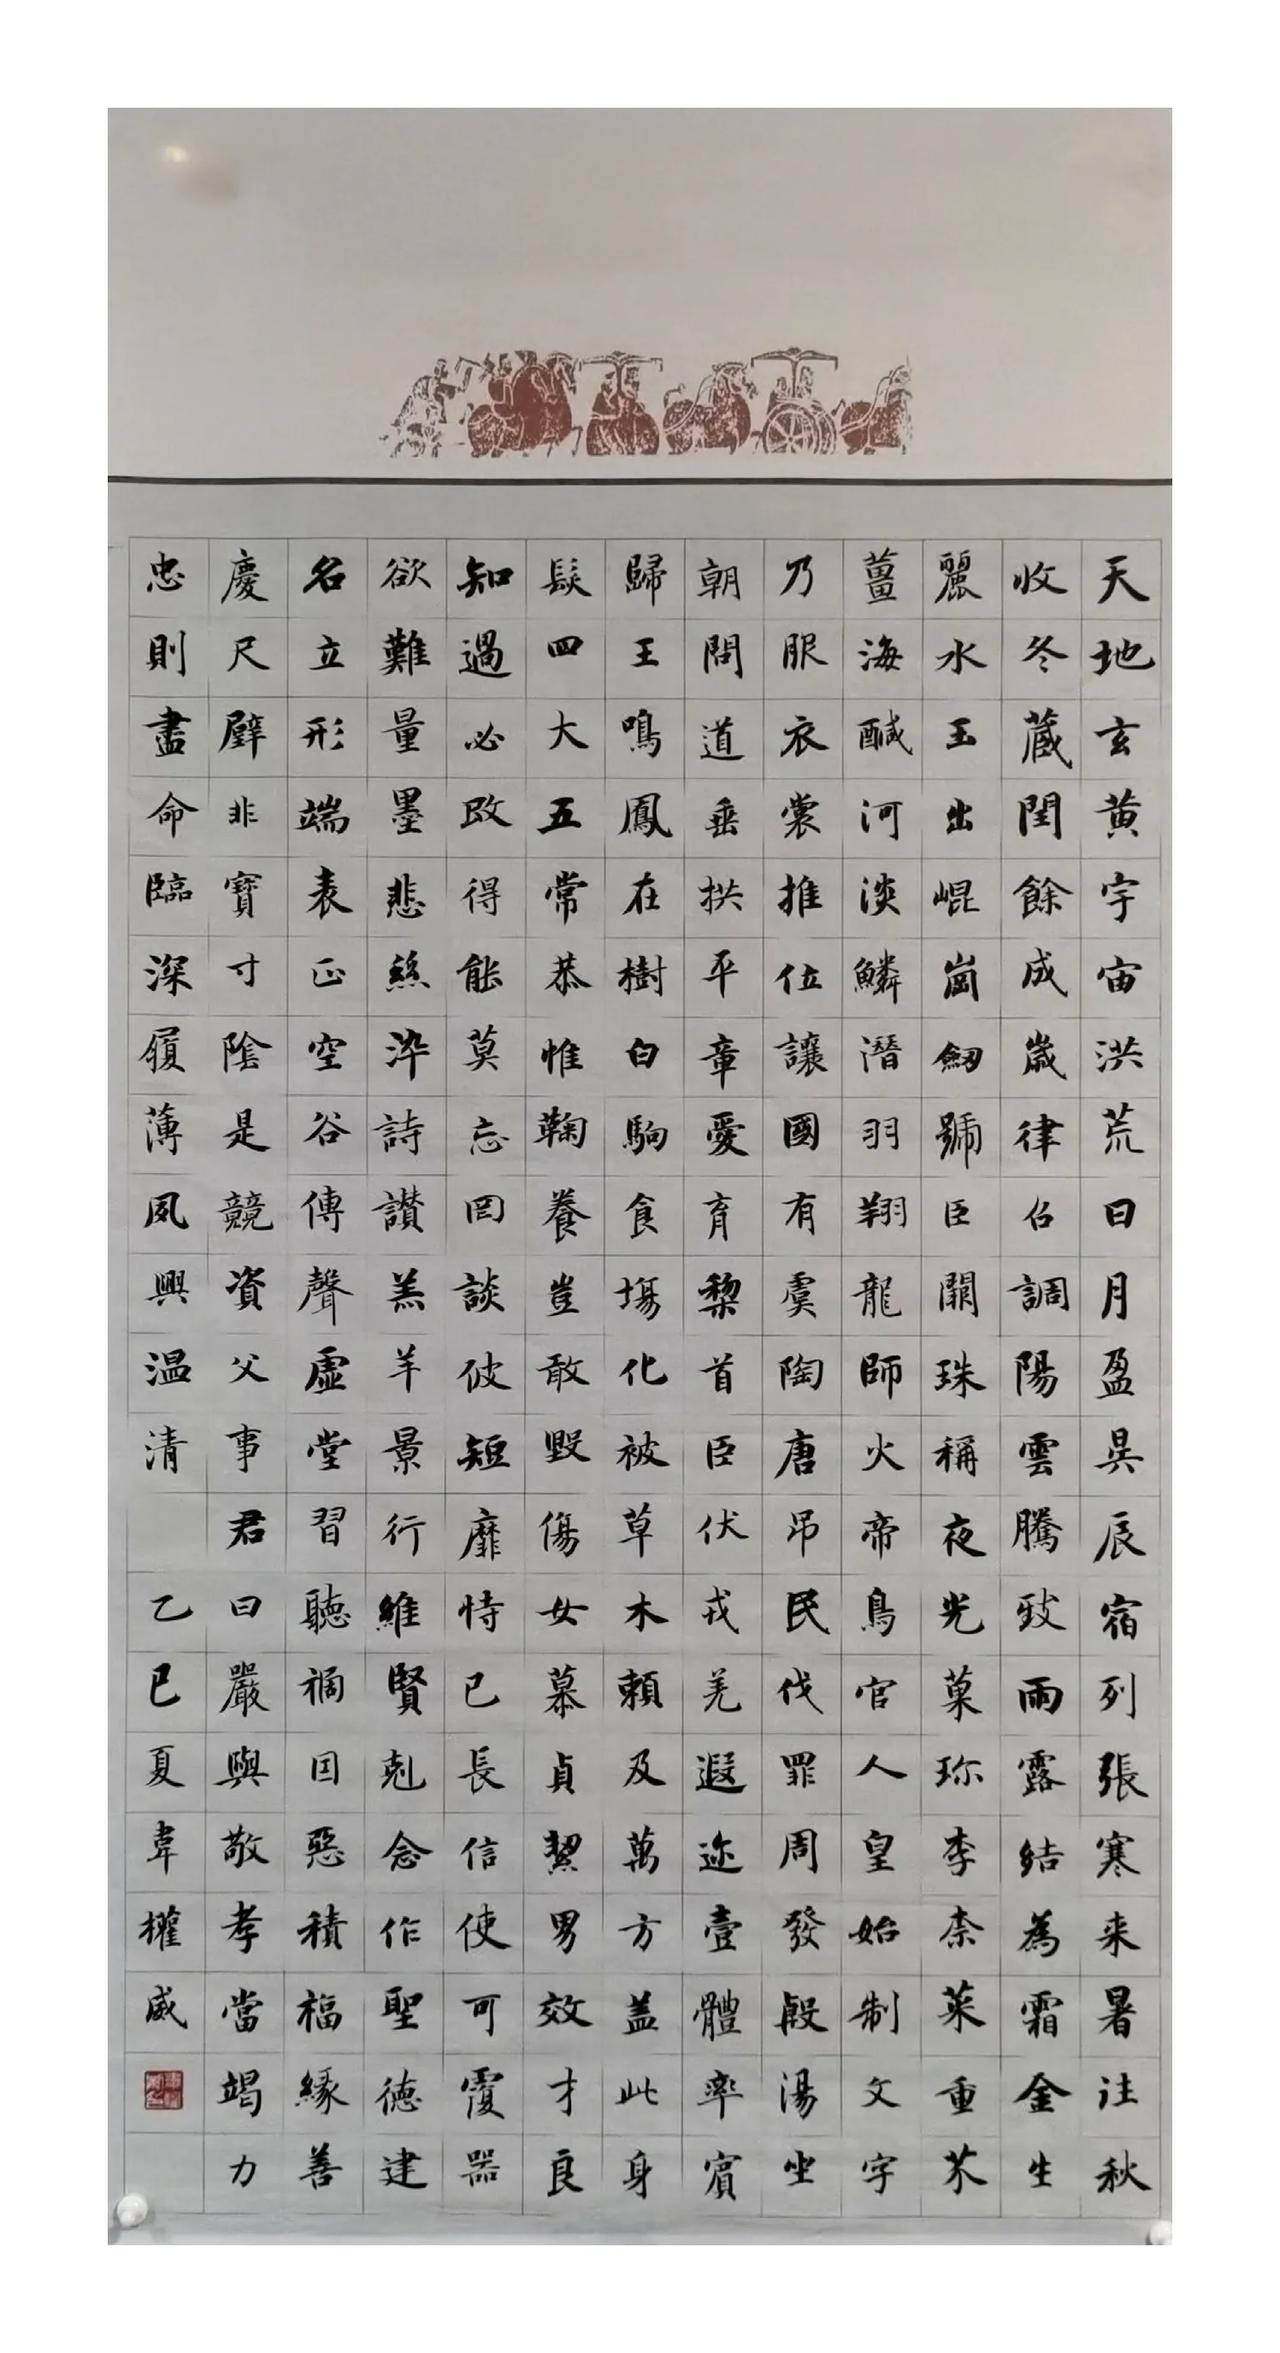 天地玄黄宇宙洪荒日月盈昃辰宿列張寒来暑往秋
收冬藏閏餘成歲律召調陽雲騰致雨露結為霜金生
麗水玉出崐崗劒號臣闕珠稱夜光菓珎李柰菜重芥
薑海醎河淡鱗潛羽翔龍師火帝鳥官人皇始制文字
乃服衣裳推位讓國有虞陶唐吊民伐罪周發殷湯坐
朝問道垂拱平章愛育黎首臣伏戎羌遐迩壹體率賓
歸王鳴鳳在樹白駒食場化被草木賴及萬方盖此身
髮四大五常恭惟鞠養豈敢毀傷女慕貞絜男效才良
知過必改得能莫忘罔談彼短靡恃己長信使可覆器
欲難量墨悲絲染詩讃羔羊景行維賢剋念作聖德建
名立形端表正空谷傳聲虛堂習聽禍因惡積福緣善
慶尺璧非寶寸陰是競資父事君曰嚴與敬孝當竭力
忠則盡命臨深履薄夙興温清 乙巳夏韋權威